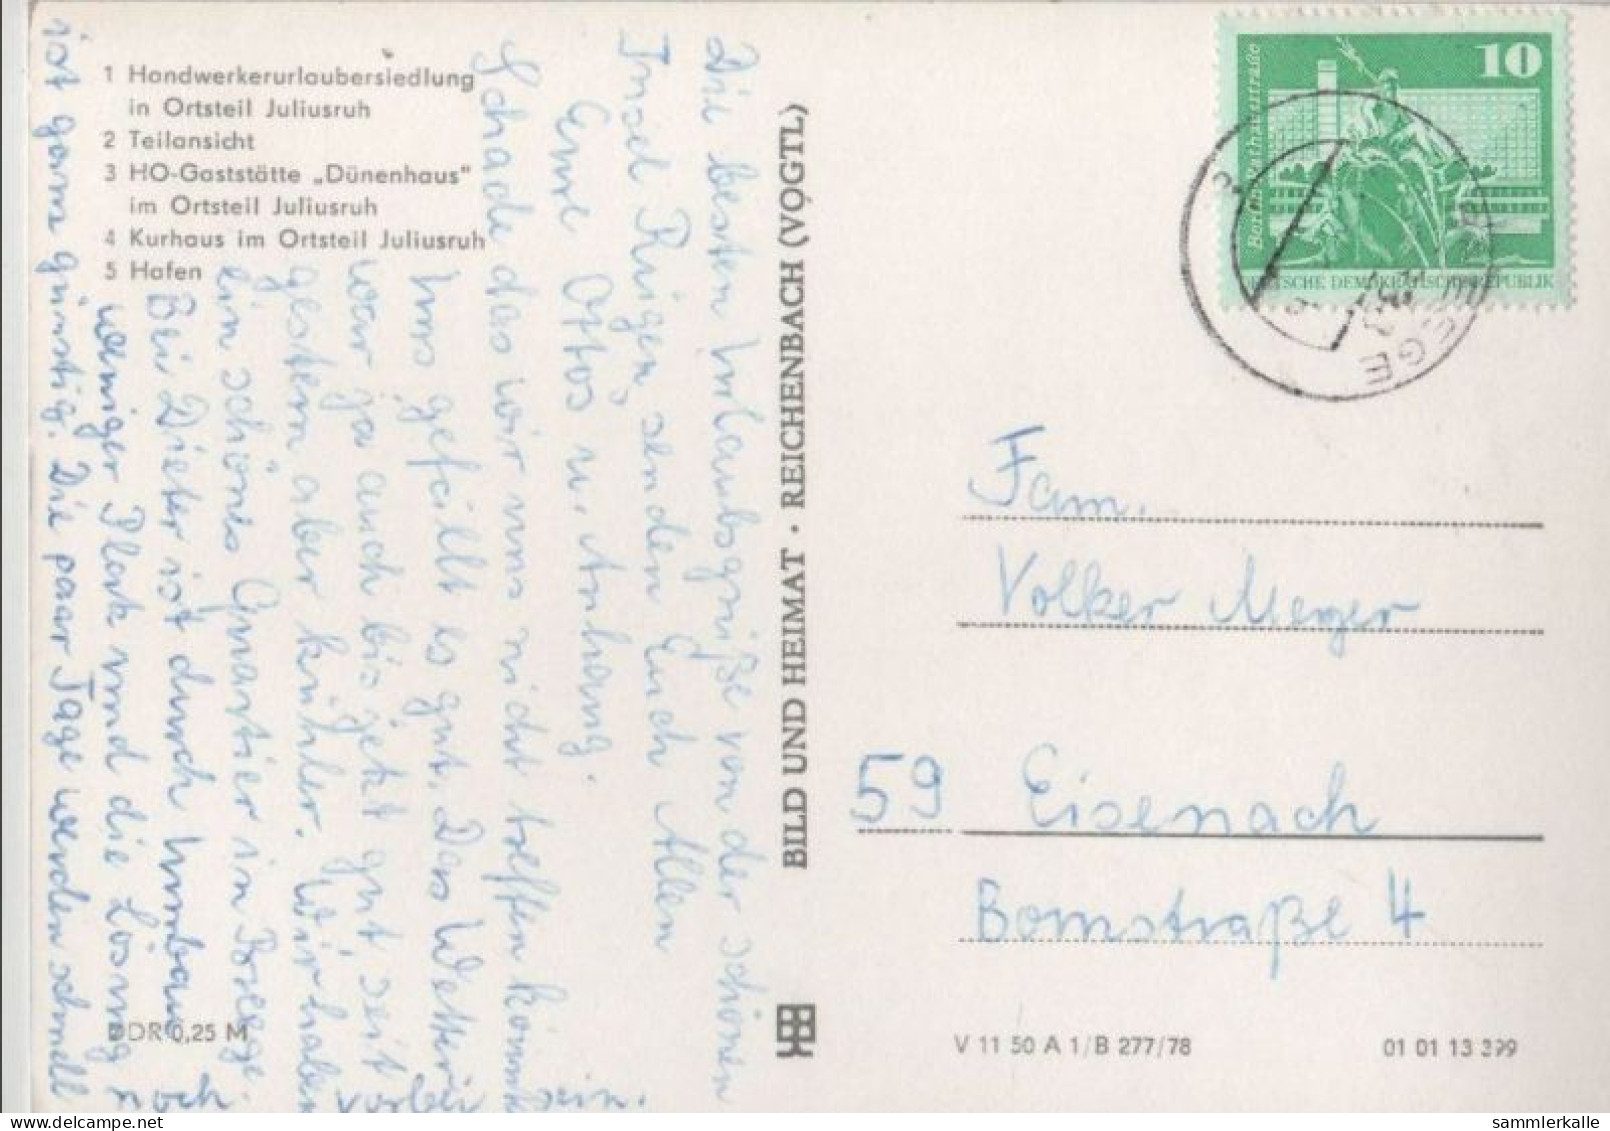 1 Handwerkerurlaubersiedlung
in Ortsteil Juliusruh
2 Teilansicht
3 HO-Gaststätte „Dünenhaus"
im Ortsteil Juliusruh
4 Kurhaus im Ortsteil Juliusruh
5 Hafen
Die besten Urlaubsgrüße von der schönen
Insel Rügen, senden Euch Allen
Eure Ottos u. Anhang.
Schade das wir uns nicht treffen könnt
Uns gefällt es gut. Das Wetter
war ja auch bis jetzt gut, seit
gestern aber kühler. Wir haben
ein schönes Quartier in Breege.
Bei Dieter ist durch Umbau
weniger Platz und die Lösung
ist ganz günstig. Die paar Tage werden schnell
och
vorbei
sein.
DDR 0,25 M
BILD UND HEIMAT · REICHENBACH (VOGTL)
10
DEUTSCHE DEMOKRATISCHE REPUBLIK
Fam.
Volker Meyer
59 Eisenach
Bornstraße 4
V 11 50 A 1/B 277/78
01 01 13 399
sammlerkalle